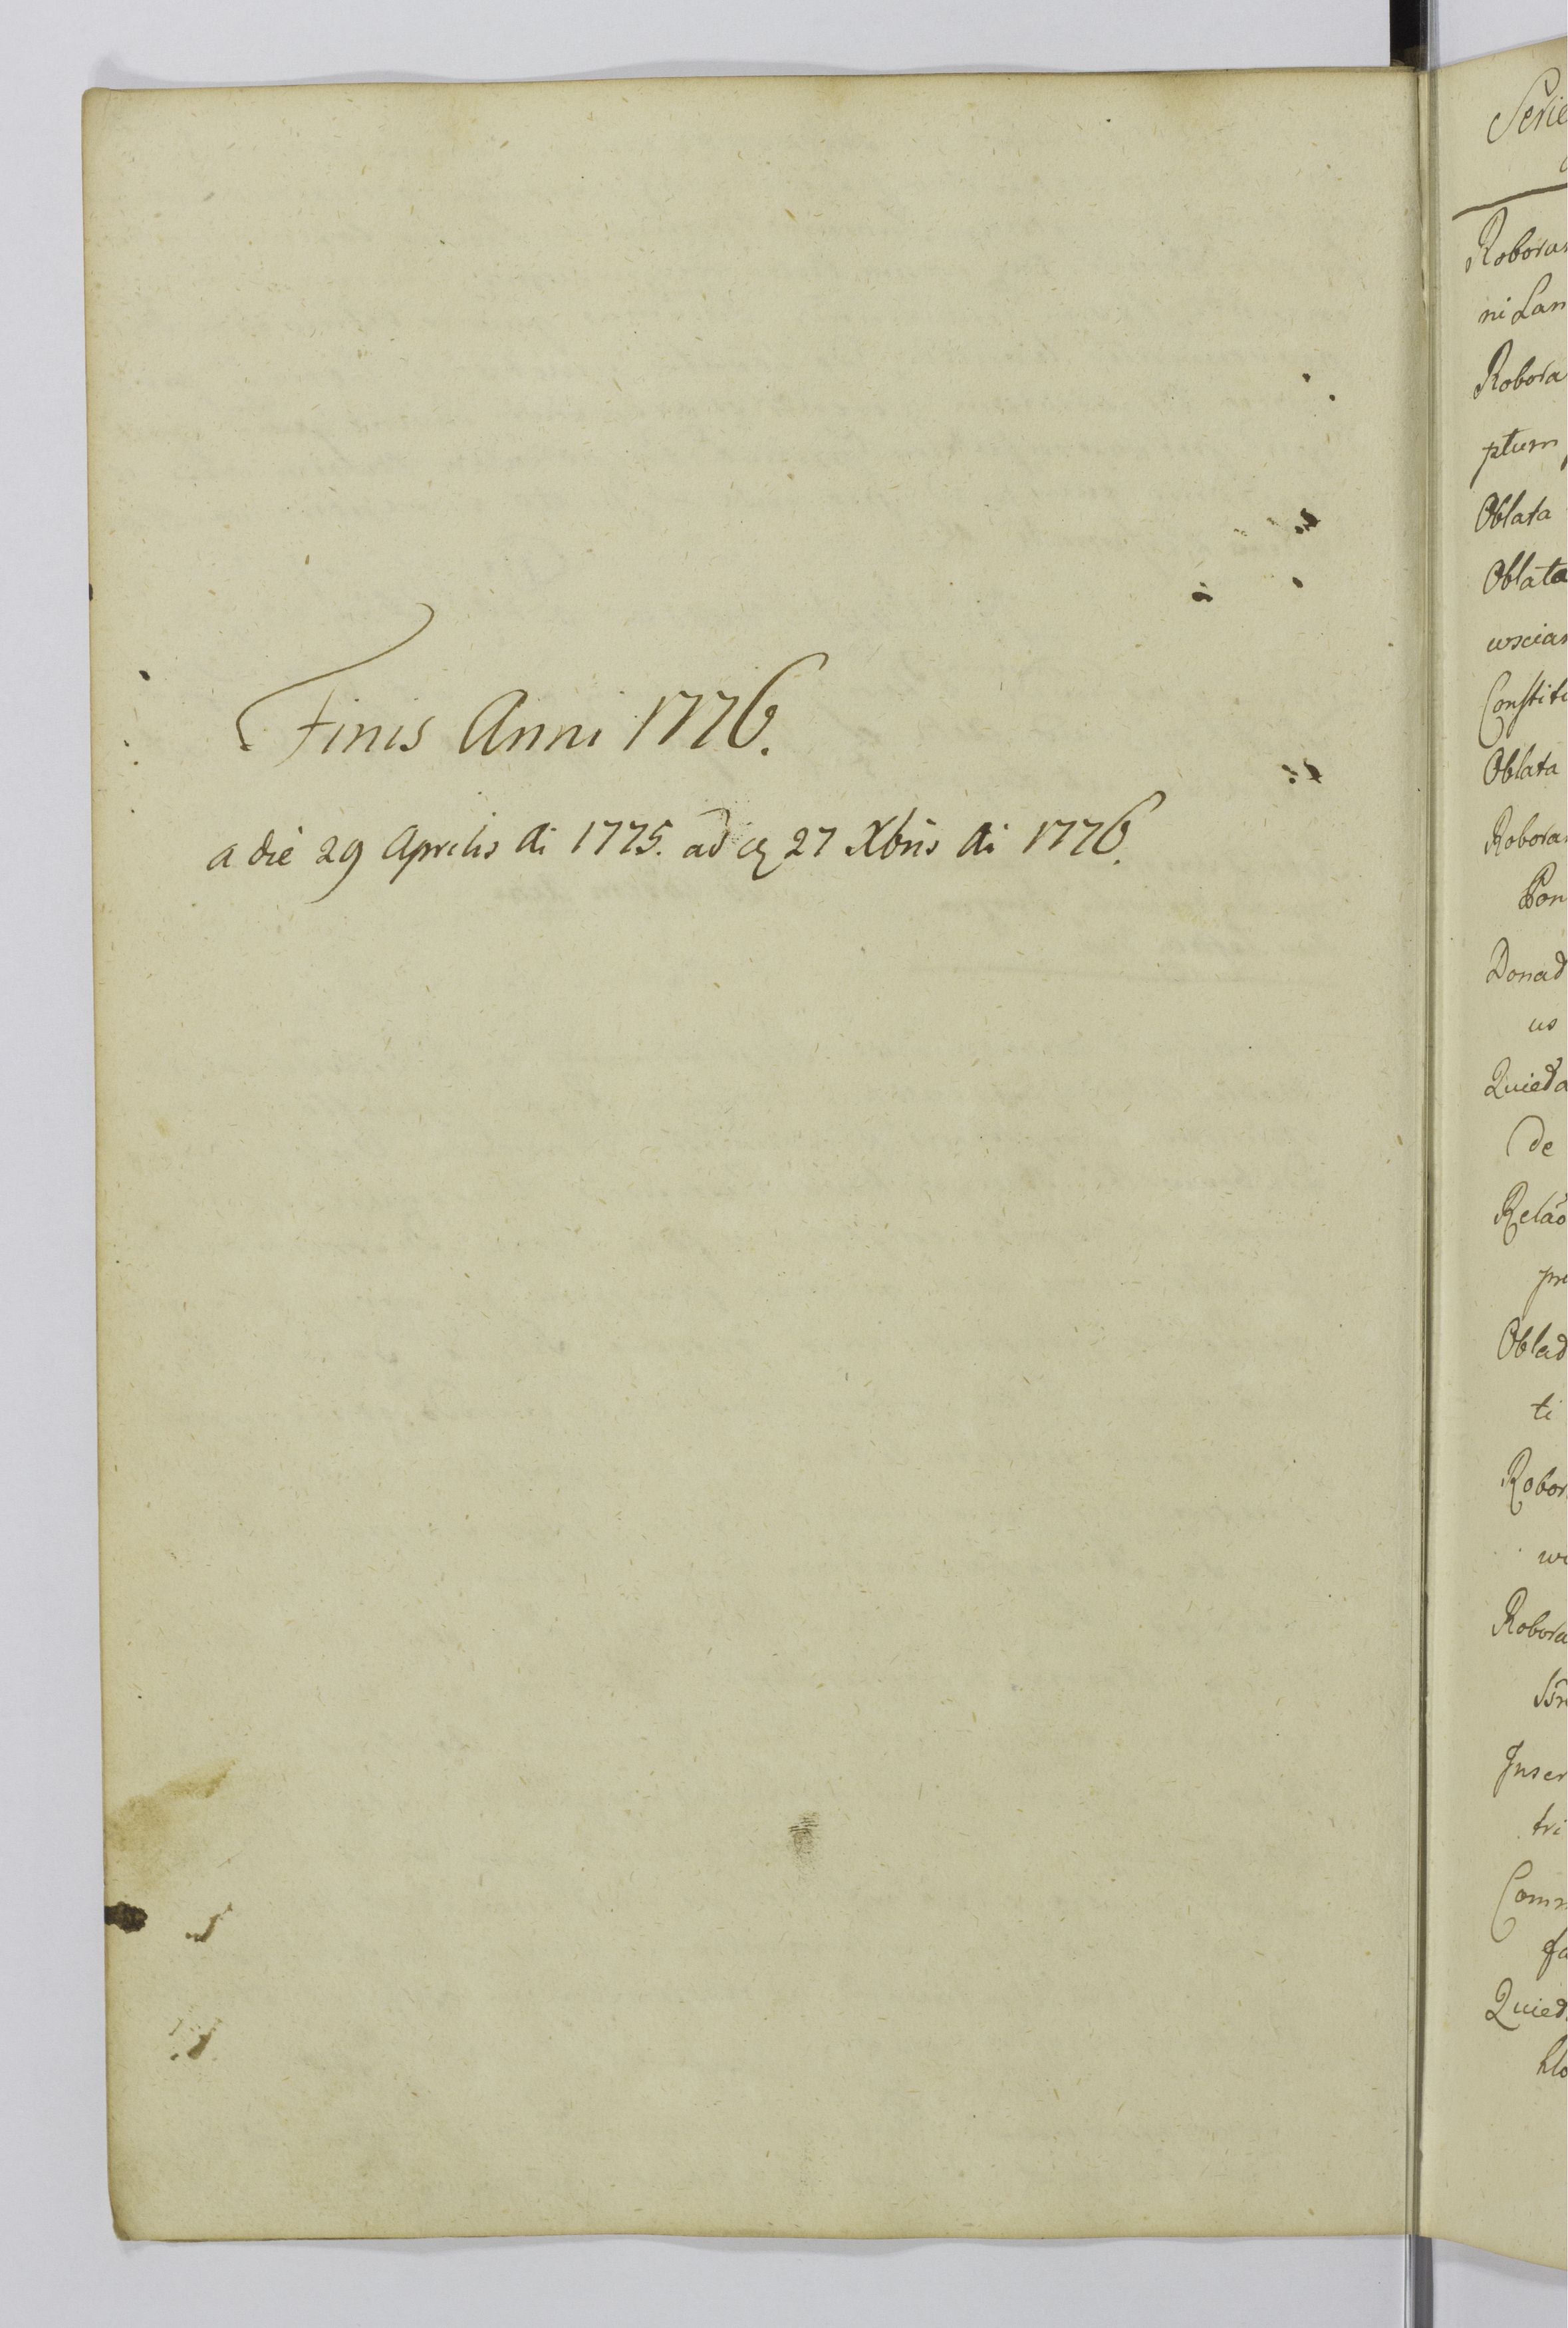 Finis Anni 1776.
a die 29 Aprilis Ai 1775. ad 27 Xbris Ai 1776.
Serie
Roborat
ni Lan
Robora
ptum
Oblata
Oblata
wscian
Constitu
Oblata
Roborat
Pon
Donað
us
Quieta
de
Relão
pre
Oblað
ti
Robor
wi
Robora
Inser
tri
Comm
fa
Quiet
hlo